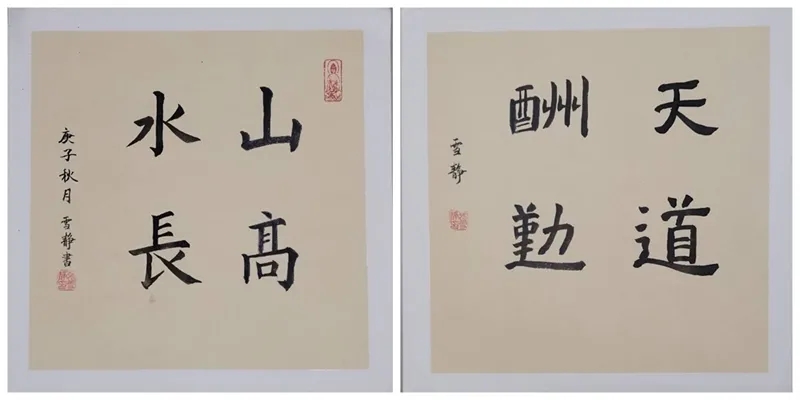 山髙
水長
庚子秋月 雪靜書
天道
酬勤
雪靜